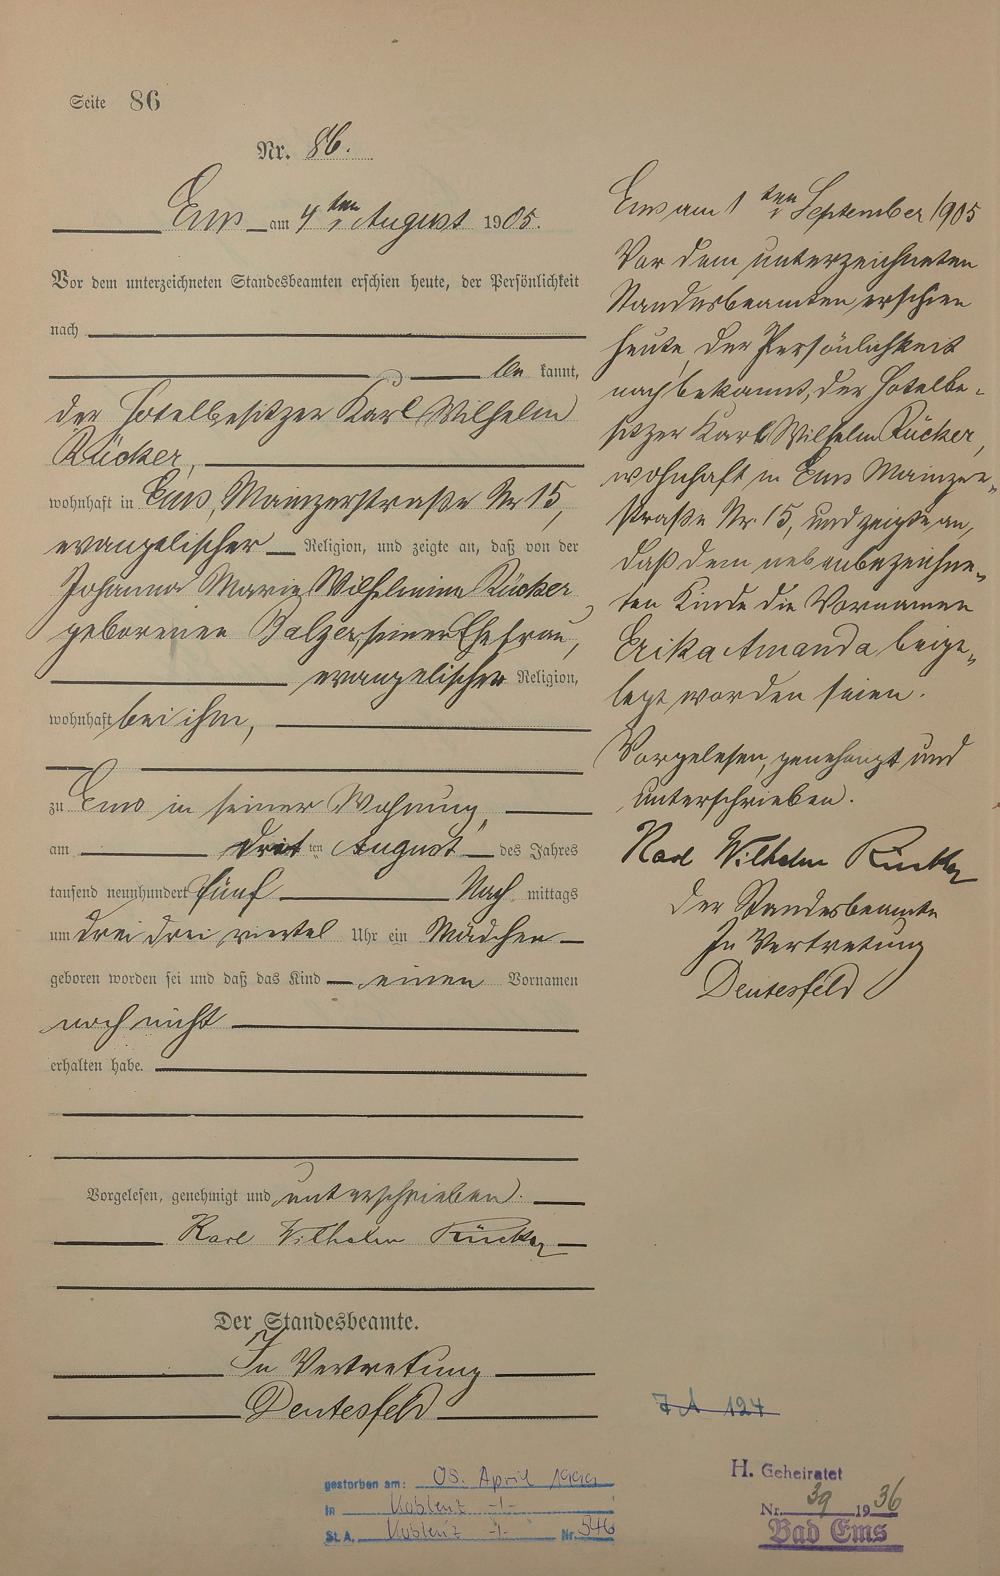 Seite 86
Nr. 86.
Ems am 4ten August 1905.
Vor dem unterzeichneten Standesbeamten erschien heute, der Persönlichkeit
nach
be kannt,
der Hotelbesitzer Karl Wilhelm
Rücker,
wohnhaft in Ems, Mainzerstraße Nr 15,
evangelischer Religion, und zeigte an, daß von der
Johanna Maria Wilhelmine Rücker
geborenen Balzer, seiner Ehefrau,
evangelischer Religion,
wohnhaft bei ihm,
zu Ems in seiner Wohnung,
am dritten August des Jahres
tausend neunhundert fünf Nach mittags
um drei drei viertel Uhr ein Mädchen
geboren worden sei und daß das Kind einen Vornamen
noch nicht
erhalten habe.
Vorgelesen, genehmigt und unterschrieben.
Karl Wilhelm Rücker
Der Standesbeamte.
In Vertretung
Deutesfeld
Ems am 1ten September 1905
Vor dem unterzeichneten
Standesbeamten erschien
heute, der Persönlichkeit
nach bekannt, der Hotelbe-
sitzer Karl Wilhelm Rücker,
wohnhaft in Ems Mainzer-
straße Nr. 15, und zeigte an,
daß dem nebenbezeichne-
ten Kinde die Vornamen
Erika Amanda beige-
legt worden seien.
Vorgelesen, genehmigt und
unterschrieben.
Karl Wilhelm Rücker
Der Standesbeamte
In Vertretung
Deutesfeld
124
gestorben am: 08. April 1999
in Koblenz -/-
St.A. Koblenz -/- Nr. 546
H. Geheiratet
Nr. 39 1936
Bad Ems